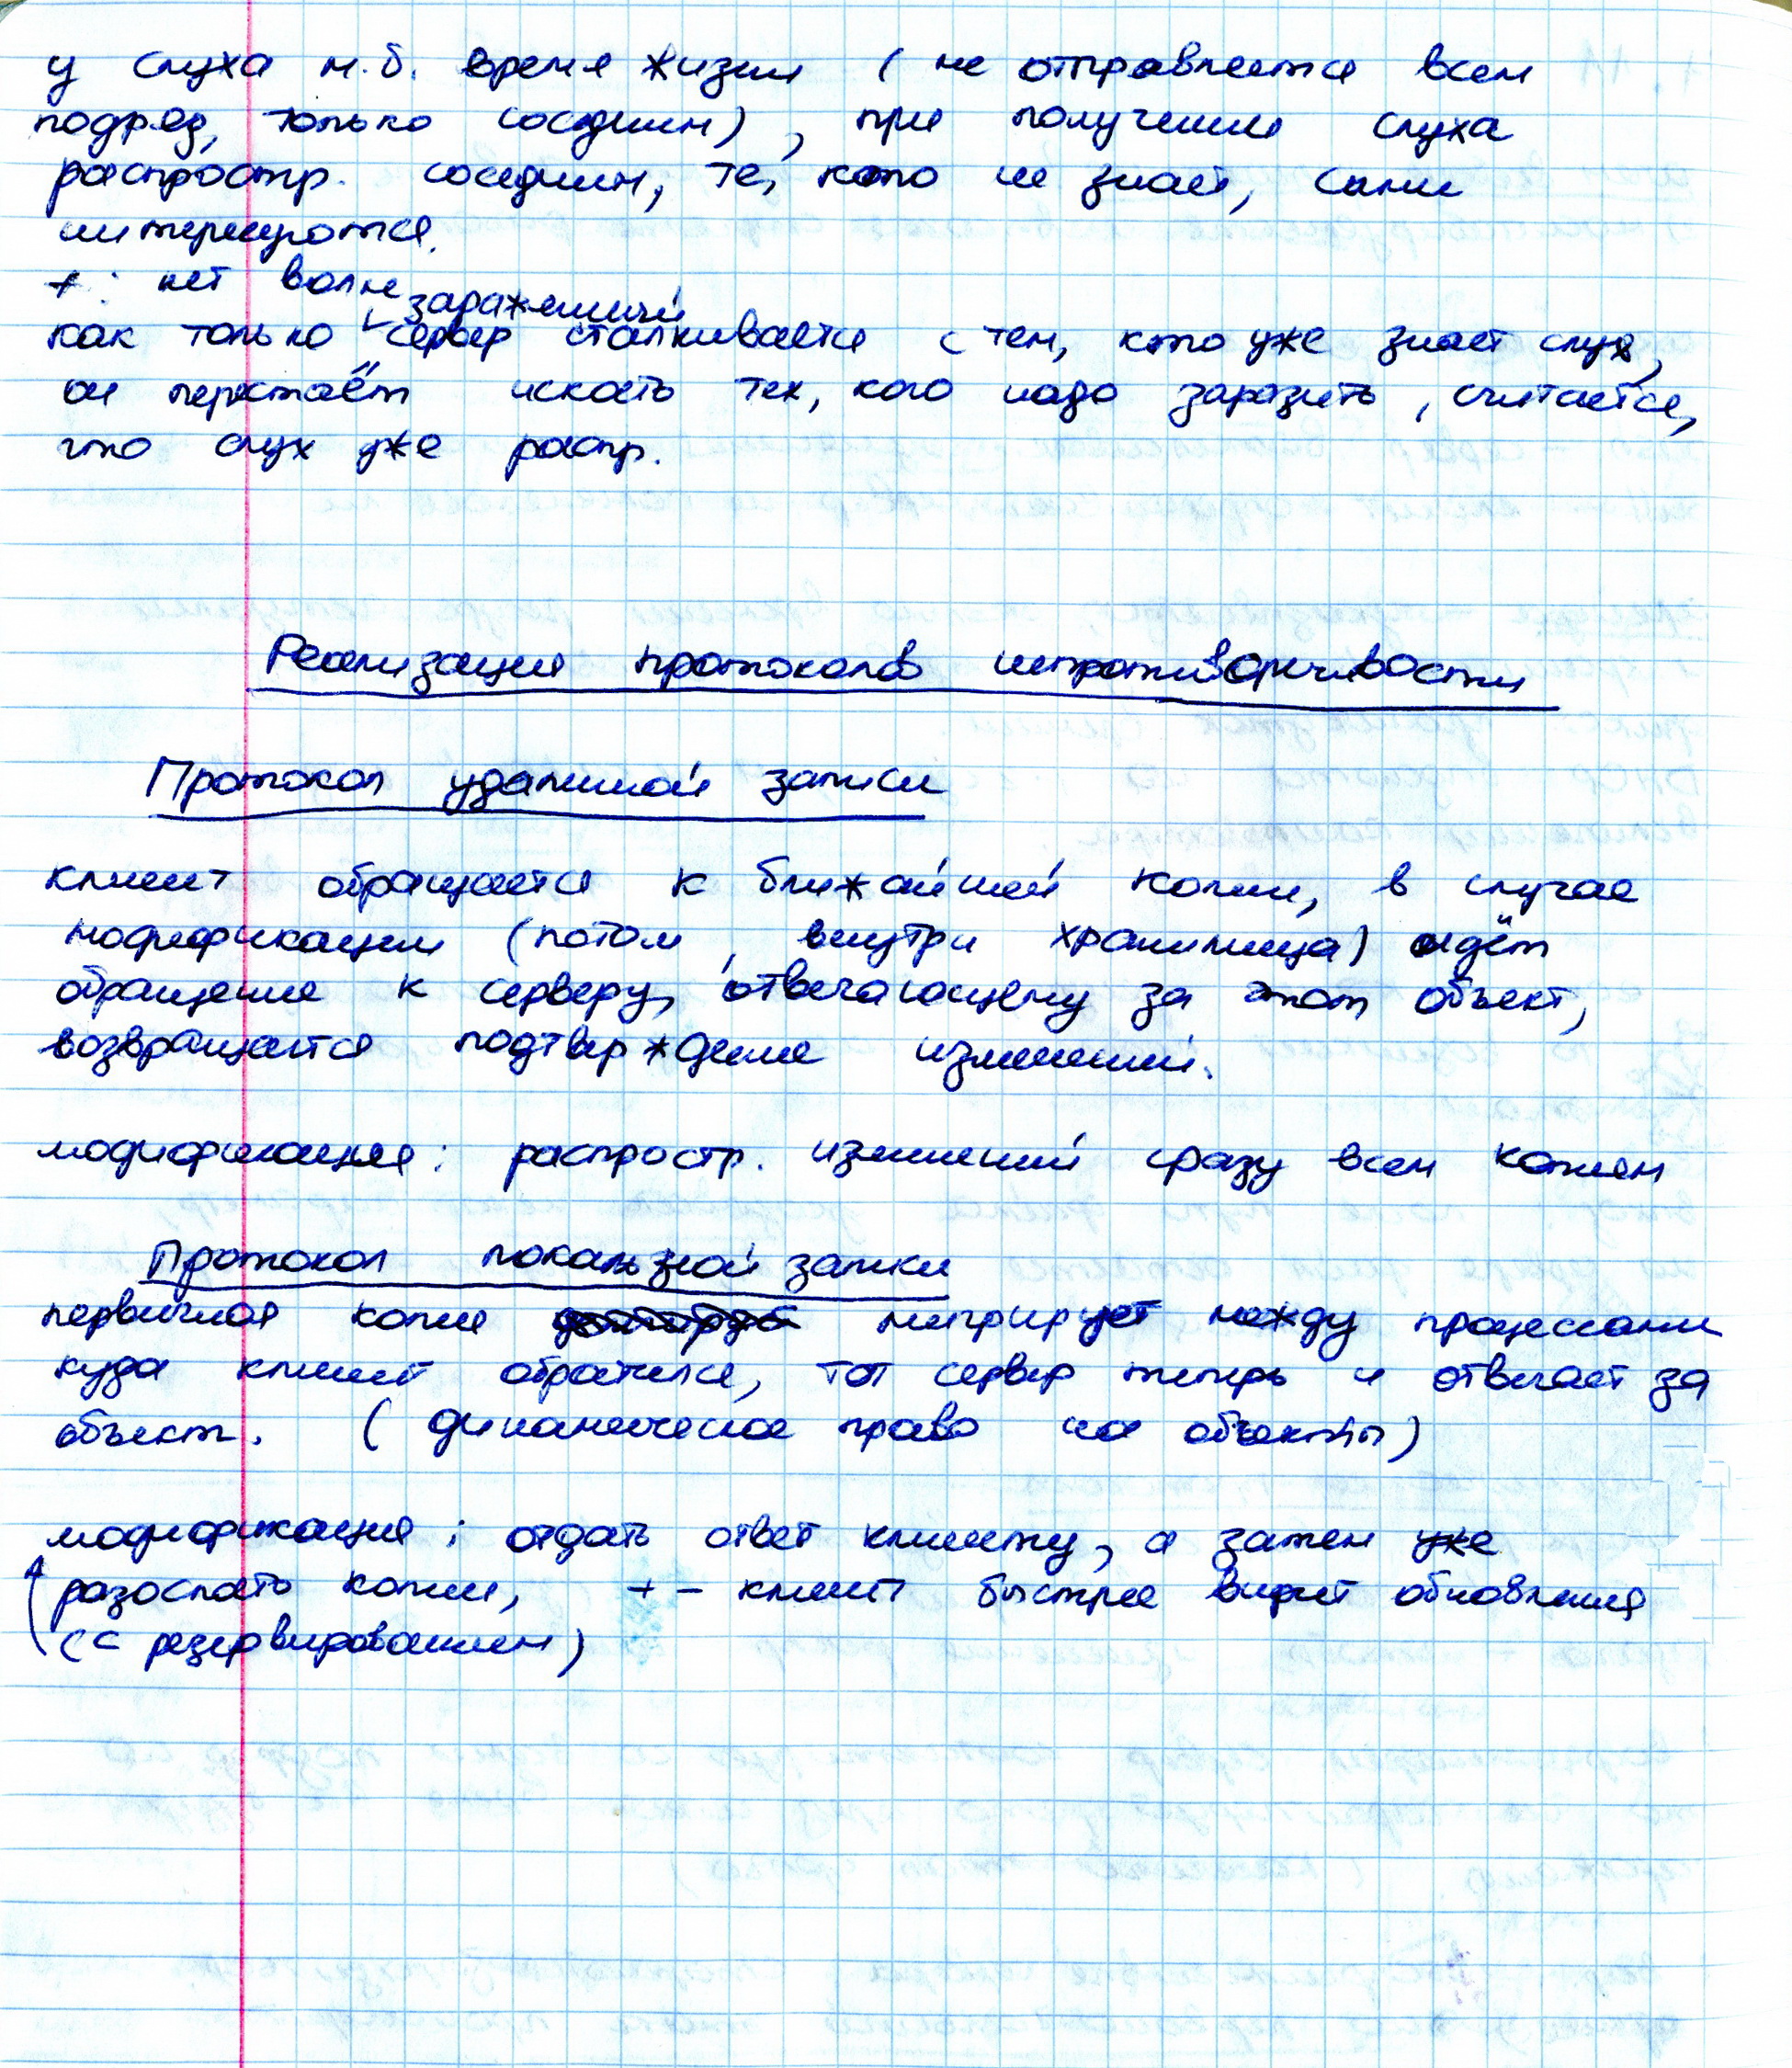 у слуха м.б. время жизни (не отправляется всем
подряд, только соседним), при получении слуха
распростр. соседним, те, кто не знает, сами
интересуются.
+: нет волне
заражённый
как только сервер сталкивается с тем, кто уже знает слух,
он перестаёт искать тех, кого надо заразить, считается,
что слух уже распр.
Реализация протоколов непротиворечивости
Протокол удалённой записи
клиент обращается к ближайшей копии, в случае
модификации (потом, внутри хранилища) идёт
обращение к серверу, отвечающему за этот объект,
возвращается подтверждение изменений.
модификация: распростр. изменений сразу всем копиям
Протокол локальной записи
первичная копия мигрирует между процессами
куда клиент обратился, тот сервер теперь и отвечает за
объект. (динамическое право на объекты)
модификация: отдать ответ клиенту, а затем уже
разослать копии, + - клиент быстрее видит обновления
(с резервированием)